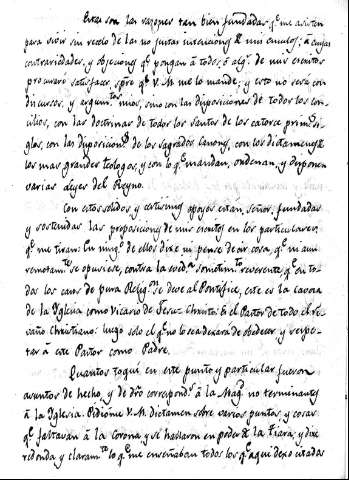 Estas son las razones tan bien fundadas qe. me asisten
para vivir sin recelo de las no justas intenciones de mis emulos; a cuyas
contrariedades, y objeciones qe. pongan â todos, ô algs. de mis escritos
procuraré satisfacer, spre qe. V. M. me lo mande; y esto no será con
discursos, y argumtos. mios, sino con las disposiciones de todos los con-
cilios, con las doctrinas de todos los santos de los catorce primos. si-
glos, con las disposiciones. de los sagrados Canons, con los dictamens. de
los mas grandes teologos, y con lo qe. mandan, ordenan, y disponen
varias Leyes del Reyno.
Con estos solidos, y certisimos apoyos estan, señor, fundadas
y sostenidas las proposiciones de mis escritos en los particulares
qe. me tiran: En ningo. de ellos dixe ni pense decir cosa, qe. ni aun
remotamte. se opusiese, contra la redida sumisimto. reverente, qe. en to-
dos los casos de pura Religon. se debe al Pontifice, este es la cabeza
de la Iglesia como Vicario de Jesu-Christo: ês el Pastor de todo el re-
vaño Christiano: luego solo el qe. no lo sea dexará de obedecer, y respe-
tar â este Pastor como Padre.
Quantos toqui en este punto y particular fueron
asuntos de hecho, y de dro. correspondte. â la Magd. no terminantes
â la Iglesia. Pidiome V. M. dictamen sobre varios puntos, y cosas
qe. faltavan â la Corona y se hallaron en poder de la tiara, y dixe
redonda y claramte. lo qe. me enseñaban todos los qe. aqui dexo citados